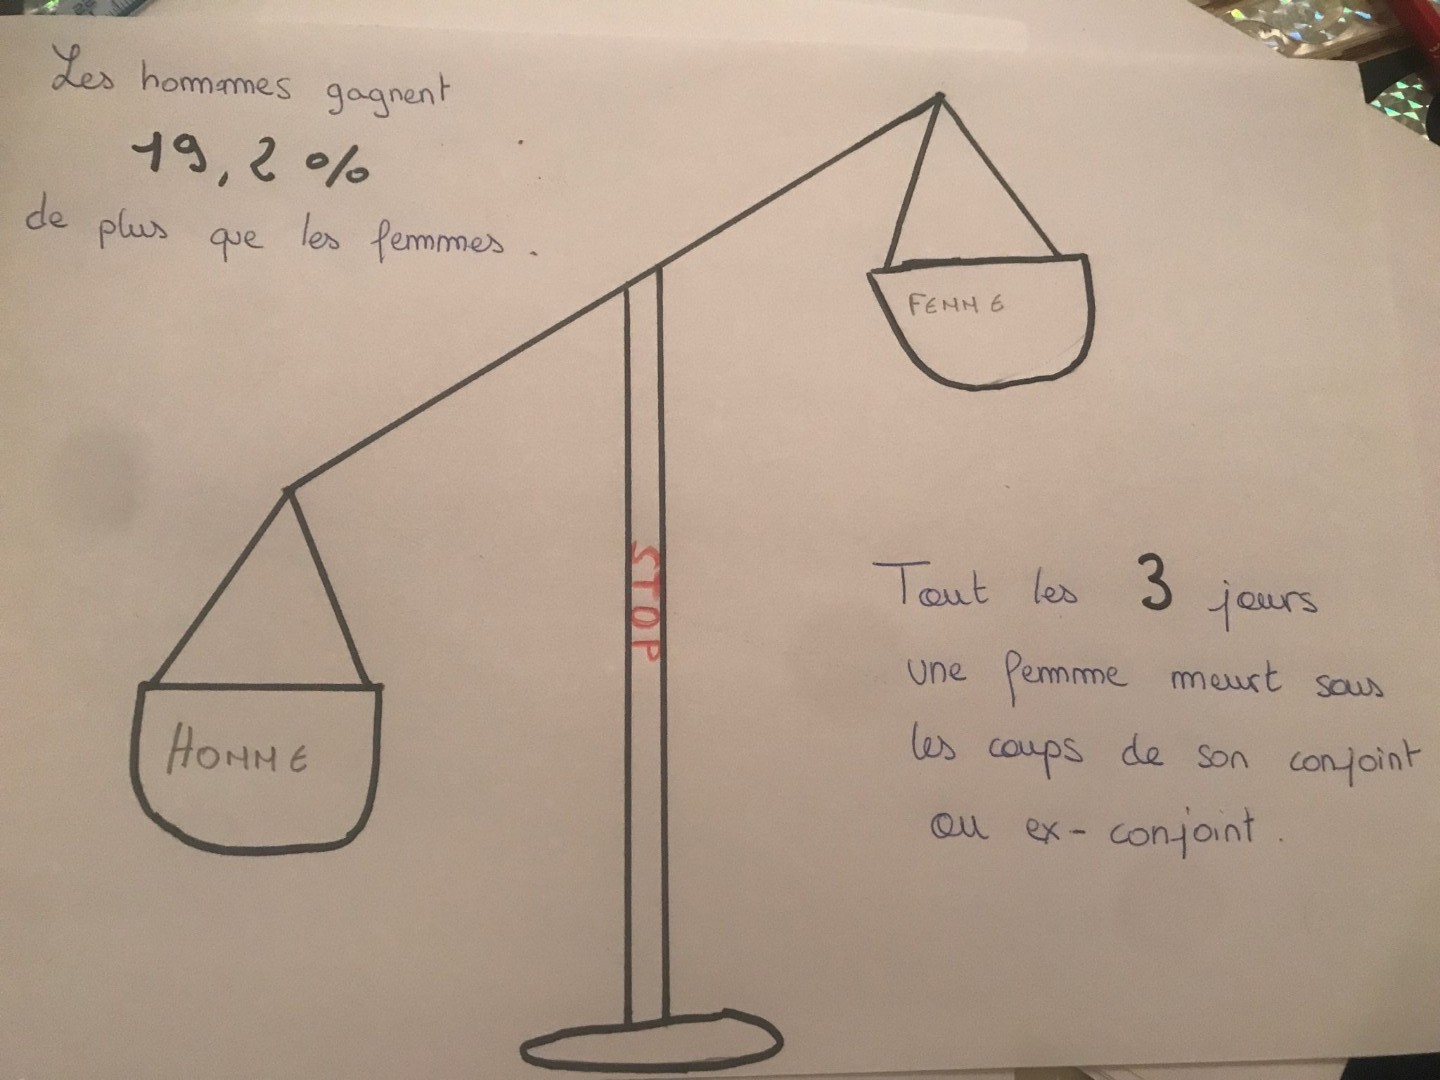 Les hommes gagnent
19,2 %
de plus que les femmes.
FEMME
STOP
HOMME
Tout les 3 jours
une femme meurt sous
les coups de son conjoint
ou ex-conjoint.